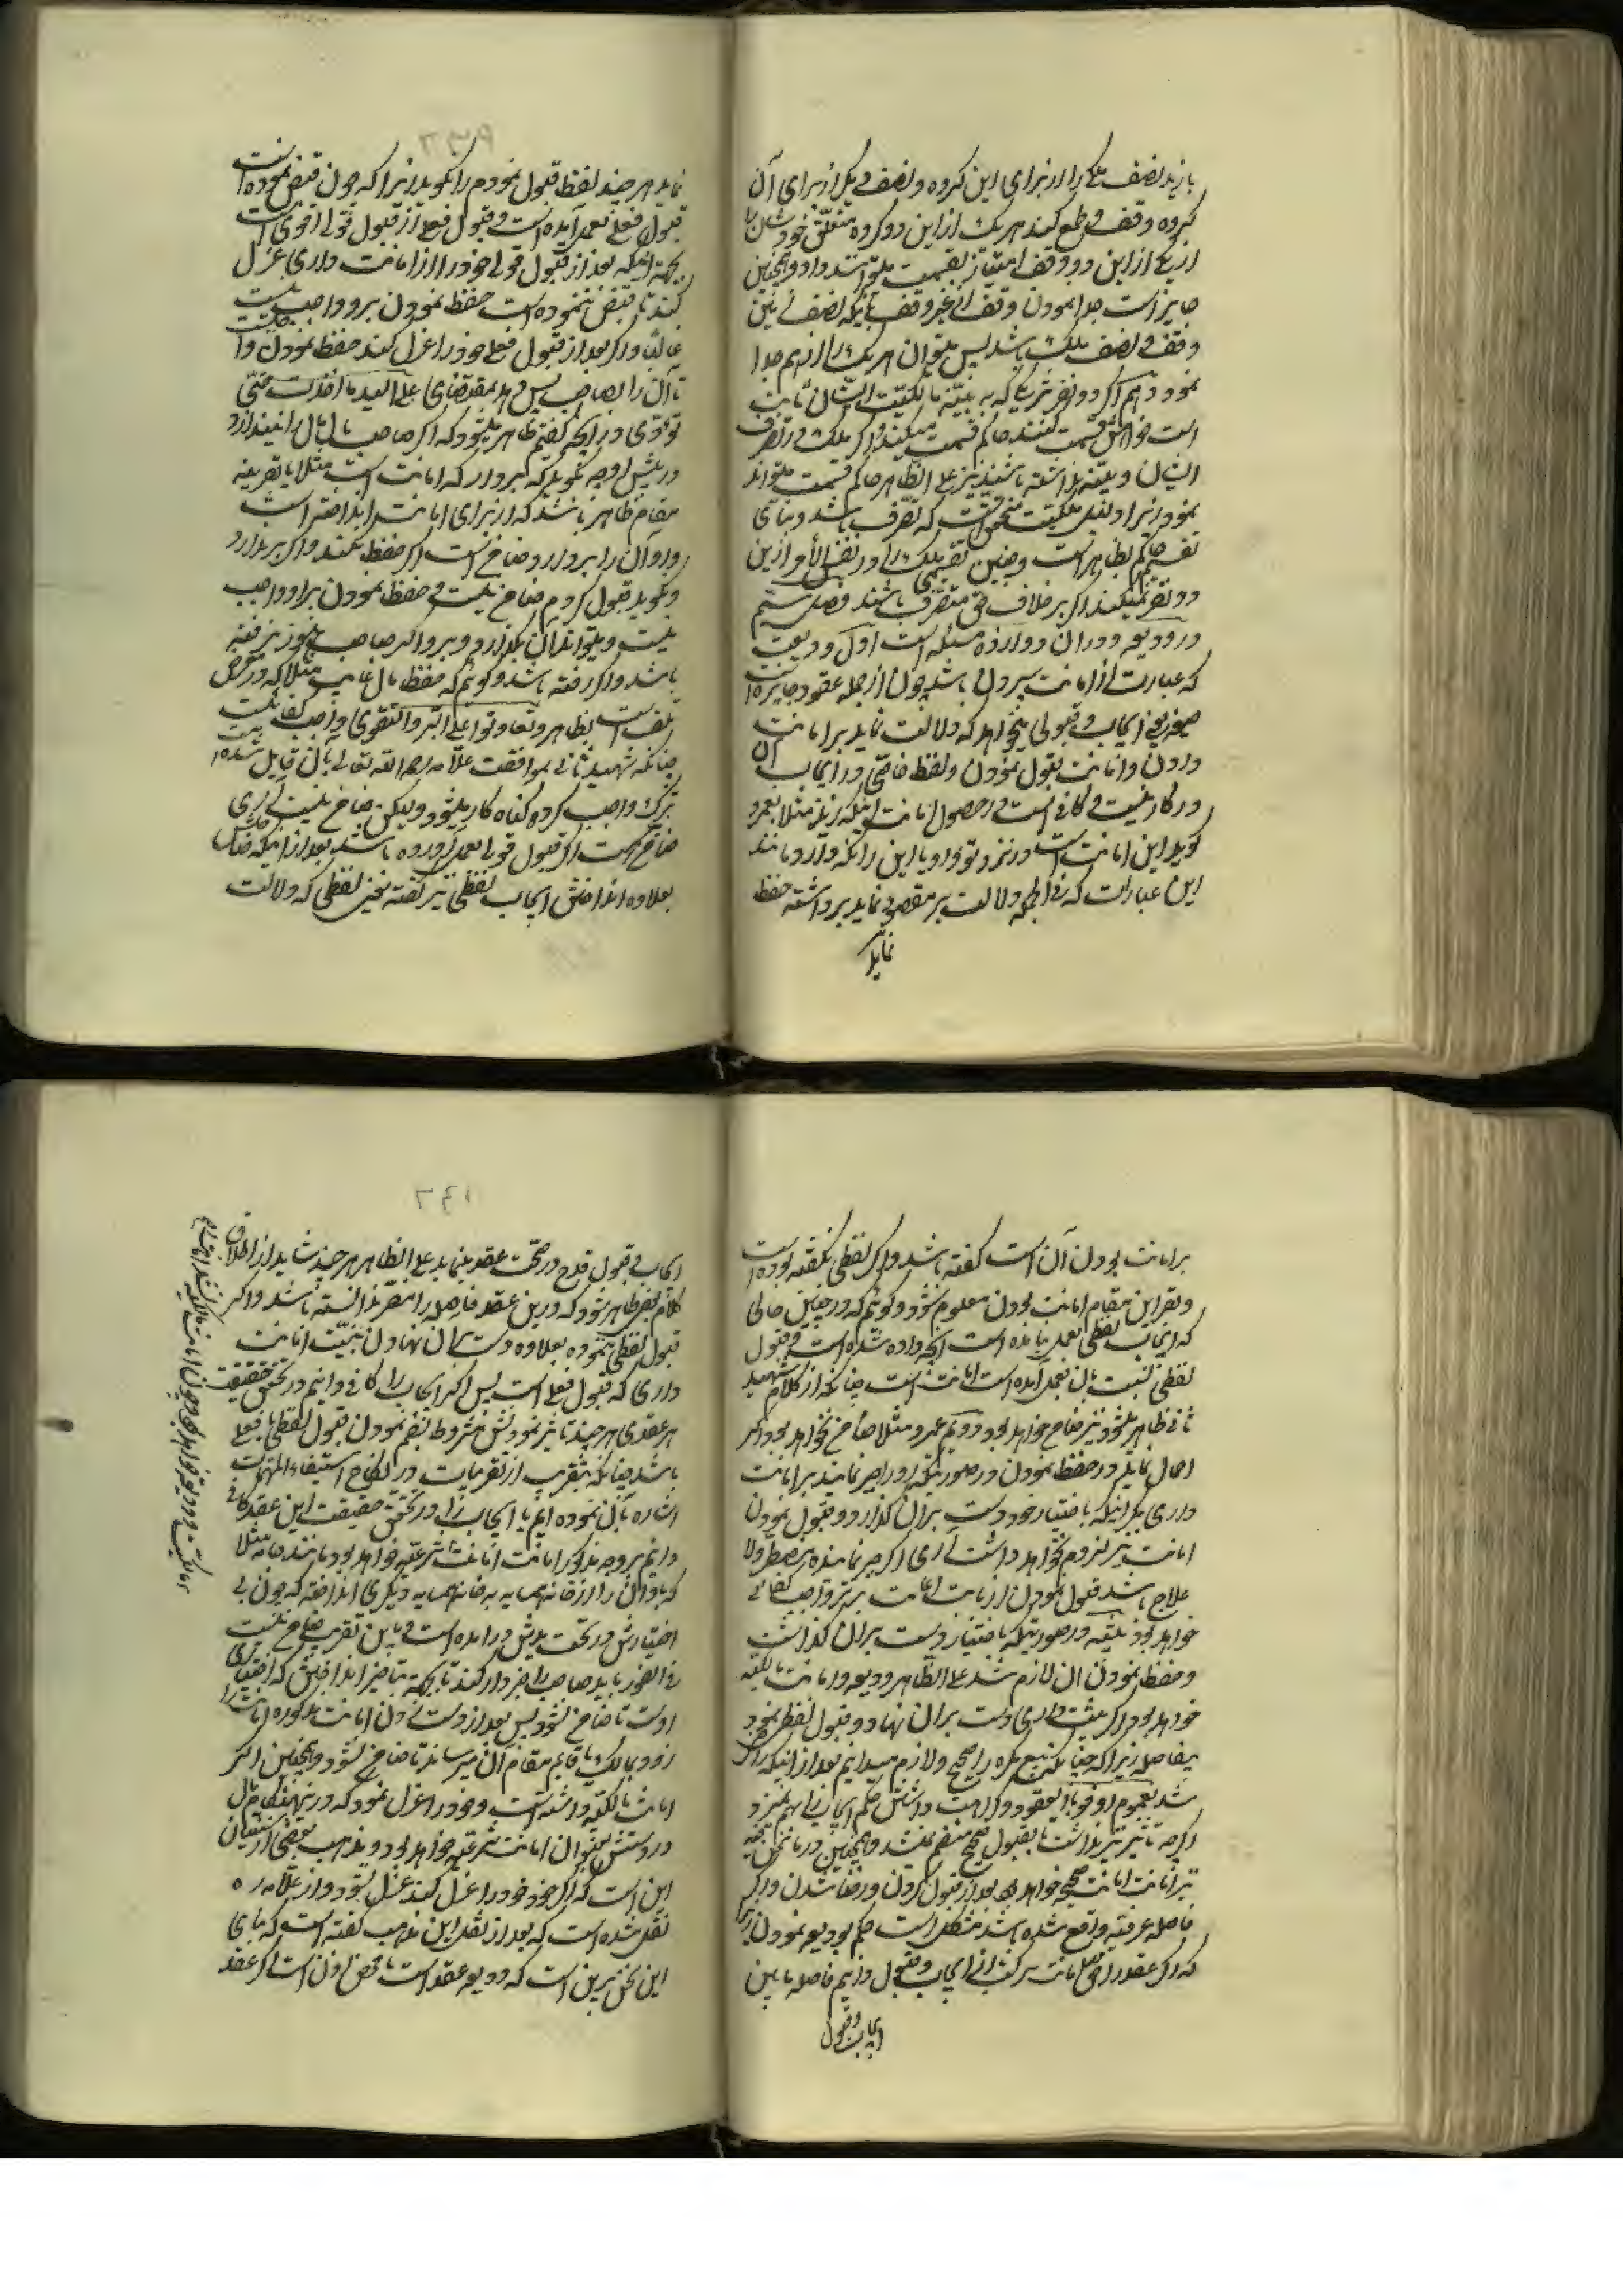 بازید نصف ملک را از برای این کروه و نصف دیکر از برای آن
کروه وقف قطع کند هر یک از این دو کروه متعلق خودشان را
از یکی از این دو وقف امتیاز بقسمت میتوانند داد و همچنین
جایز است جدا نمودن وقف از غیر وقف باینکه نصف زمین
وقف و نصف ملک باشد پس میتوان هر یک را از هم جدا
نمود دهم اکر دو نفر شریک که به بینه مالکیت ایشان ثابت
است خواهش قسمت کنند حاکم قسمت میکند و اکر ملک در تصرف
ایشان و بینه نداشته باشند نیز علی الظاهر حاکم قسمت میتواند
نمود زیرا دلیل ملکیت که تصرف باشد و بنای
تقسیم حاکم بظاهر است و چنین تقسیمی ملک را در نفس الأمر از این
دو نفر نمیکند اکر بر خلاف حق متصرف باشند فصل ششم
در ودیعه و در آن دوازده مسئله است اول ودیعت
که عبارت از امانت سپردن باشد چون از جمله عقود جایزه است
صیغه یعنی ایجاب و قبولی میخواهد که دلالت نماید بر امانت
دادن و امانت قبول نمودن و لفظ خاصی در ایجاب آن
در کار نیست و کافی است در حصول امانت اینکه زید مثلا بعمرو
کوید این امانت است در نزد تو و یا این را نکه دار و مانند
این عبارات که فی الجمله دلالت بر مقصود نماید برداشته حفظ
نماید
نماید هر چند لفظ قبول نمودم را نکوید زیرا که چون قبض نموده است
قبول فعلی بعمل آمده است و قبول فعلی از قبول قولی اقوی است
بجهة اینکه بعد از قبول قولی خود را از امانت داری عزل
کند تا قبض ننموده است حفظ نمودن برو واجب نیست
غالبا و اکر بعد از قبول فعلی خود را عزل کند حفظ نمودن واجبست
تا آن را بصاحبش پس دهد بمقتضای علی الید ما اخذت حتی
تؤدی و از آنچه کفتم ظاهر میشود که اکر صاحب مال مال را بیندازد
در پیش او و نکوید که بردار که امانت است مثلا یا بقرینه
مقام ظاهر باشد که از برای امانت انداخته است
و او آن را برندارد ضامن نیست اکر حفظ نکند و اکر برندارد
و بکوید قبول کردم ضامن نیست و حفظ نمودن بر او واجب
نیست و میتواند آن بکذارد و برود اکر صاحبش هنوز نرفته
باشد و اکر رفته باشد و کوئیم که حفظ مال غایب مثلا که در معرض
تلف است بظاهر و تعاونوا علی البر و التقوی واجب کفائیست
چنانکه شهید ثانی بموافقت علامه رحمه الله تعالی بآن قایل شده است
بترک واجب کرده کناه کار میشود ولیکن ضامن نیست آری
ضامن است اکر قبول قولی بعمل آورده باشد بعد از اینکه
بعلاوه انداختن ایجاب لفظی نیز کفته یعنی لفظی که دلالت
بر امانت بودن آن است کفته باشد و اکر لفظی نکفته بوده است
و بقراین مقام امانت بودن معلوم شود و کوئیم که در چنین حالی
که ایجاب لفظی بعمل نیامده است آنچه داده شده است و قبول
لفظی نسبت بآن بعمل آمده است امانت است چنانکه از کلام شهید
ثانی ظاهر میشود نیز ضامن خواهد بود دویم عمرو مثلا ضامن نخواهد بود اکر
اهمال نماید در حفظ نمودن در صورتیکه زور جبر نماید بر امانت
داری مکر اینکه باختیار خود دست بر آن کذارد و قبول نمودن
امانت نیز لزوم نخواهد داشت آری اکر جبر نماینده مضطر و لا
علاج باشد قبول نمودن از باب اعانت بر بر واجب کفائی
خواهد بود بلیقه در صورتیکه باختیار دست بر آن کذاشت
و حفظ نمودن آن لازم شد علی الظاهر ودیعه و امانت مالکیه
خواهد بود اکر به نیت امانت داری دست بر آن نهاد و قبول لفظی نمود
بیفاصله زیرا که چنانکه بیع مکره را صحیح و لازم میدانیم بعد از اینکه راضی
شد بعموم اوفوا بالعقود و کراهت داشتن حکم ایجاب را بهم نمیزد
اکرچه تأثیر نداشت تا بقبول صحیح منضم نشد و همچنین در ما نحن فیه
نیز امانت امانت صحیحه خواهد بود بعد از قبول کردن و رضا شدن و اکر
فاصله عرفیه واقع شده باشد مشکل است حکم بودیعه نمودن زیرا
که اکر عقد را در امانت مرکب از ایجاب و قبول دانیم فاصله مابین
ایجاب و قبول
ایجاب و قبول قدح در صحت عقد مینماید علی الظاهر هر چند شاید از اطلاق
کلام بعضی ظاهر شود که در این عقد فاصله را مضر ندانسته باشد و اکر
قبول لفظی ننموده بعلاوه دست بر آن نهادن به نیت امانت
داری که قبول فعلی است پس اکر ایجاب را کافی دانیم در تحقق حقیقت
هر عقدی هر چند تأثیر نمودنش مشروط بضم نمودن قبول لفظی یا فعلی
باشد چنانکه بتقریب از تقریبات در نکاح استیفاء المتهمات
اشاره بآن نموده ایم یا ایجاب را در تحقق حقیقت این عقد کافی
دانیم بر وجه مذکور امانت امانت شرعیه خواهد بود مانند جامه مثلا
که باد آن را از خانه همسایه به خانه همسایه دیکری انداخته که چون بی
اختیارش در تحت یدش در آمده است و باین تقریب ضامن نیست
فی الفور باید صاحبش را خبردار کند تا بجهة تأخیر انداختنش که اختیاری
اوست تا ضامن نشود پس بعد از دست زدن امانت مذکوره امانت را
زود بمالک یا قایم مقام آن میرساند تا ضامن نشود و همچنین اکر
امانت مالکیه داشته است و خود را عزل نمود که در اینهنکام مال
در دستش بعنوان امانت شرعیه خواهد بود و مذهب بعضی از سنیان
این است که اکر خود خود را عزل کند عزل نشود و از علامه ره
نقل شده است که بعد از نقل این مذهب کفته است که بنای
این سخن بر این است که ودیعه عقد است یا محض اذن است اکر عقد